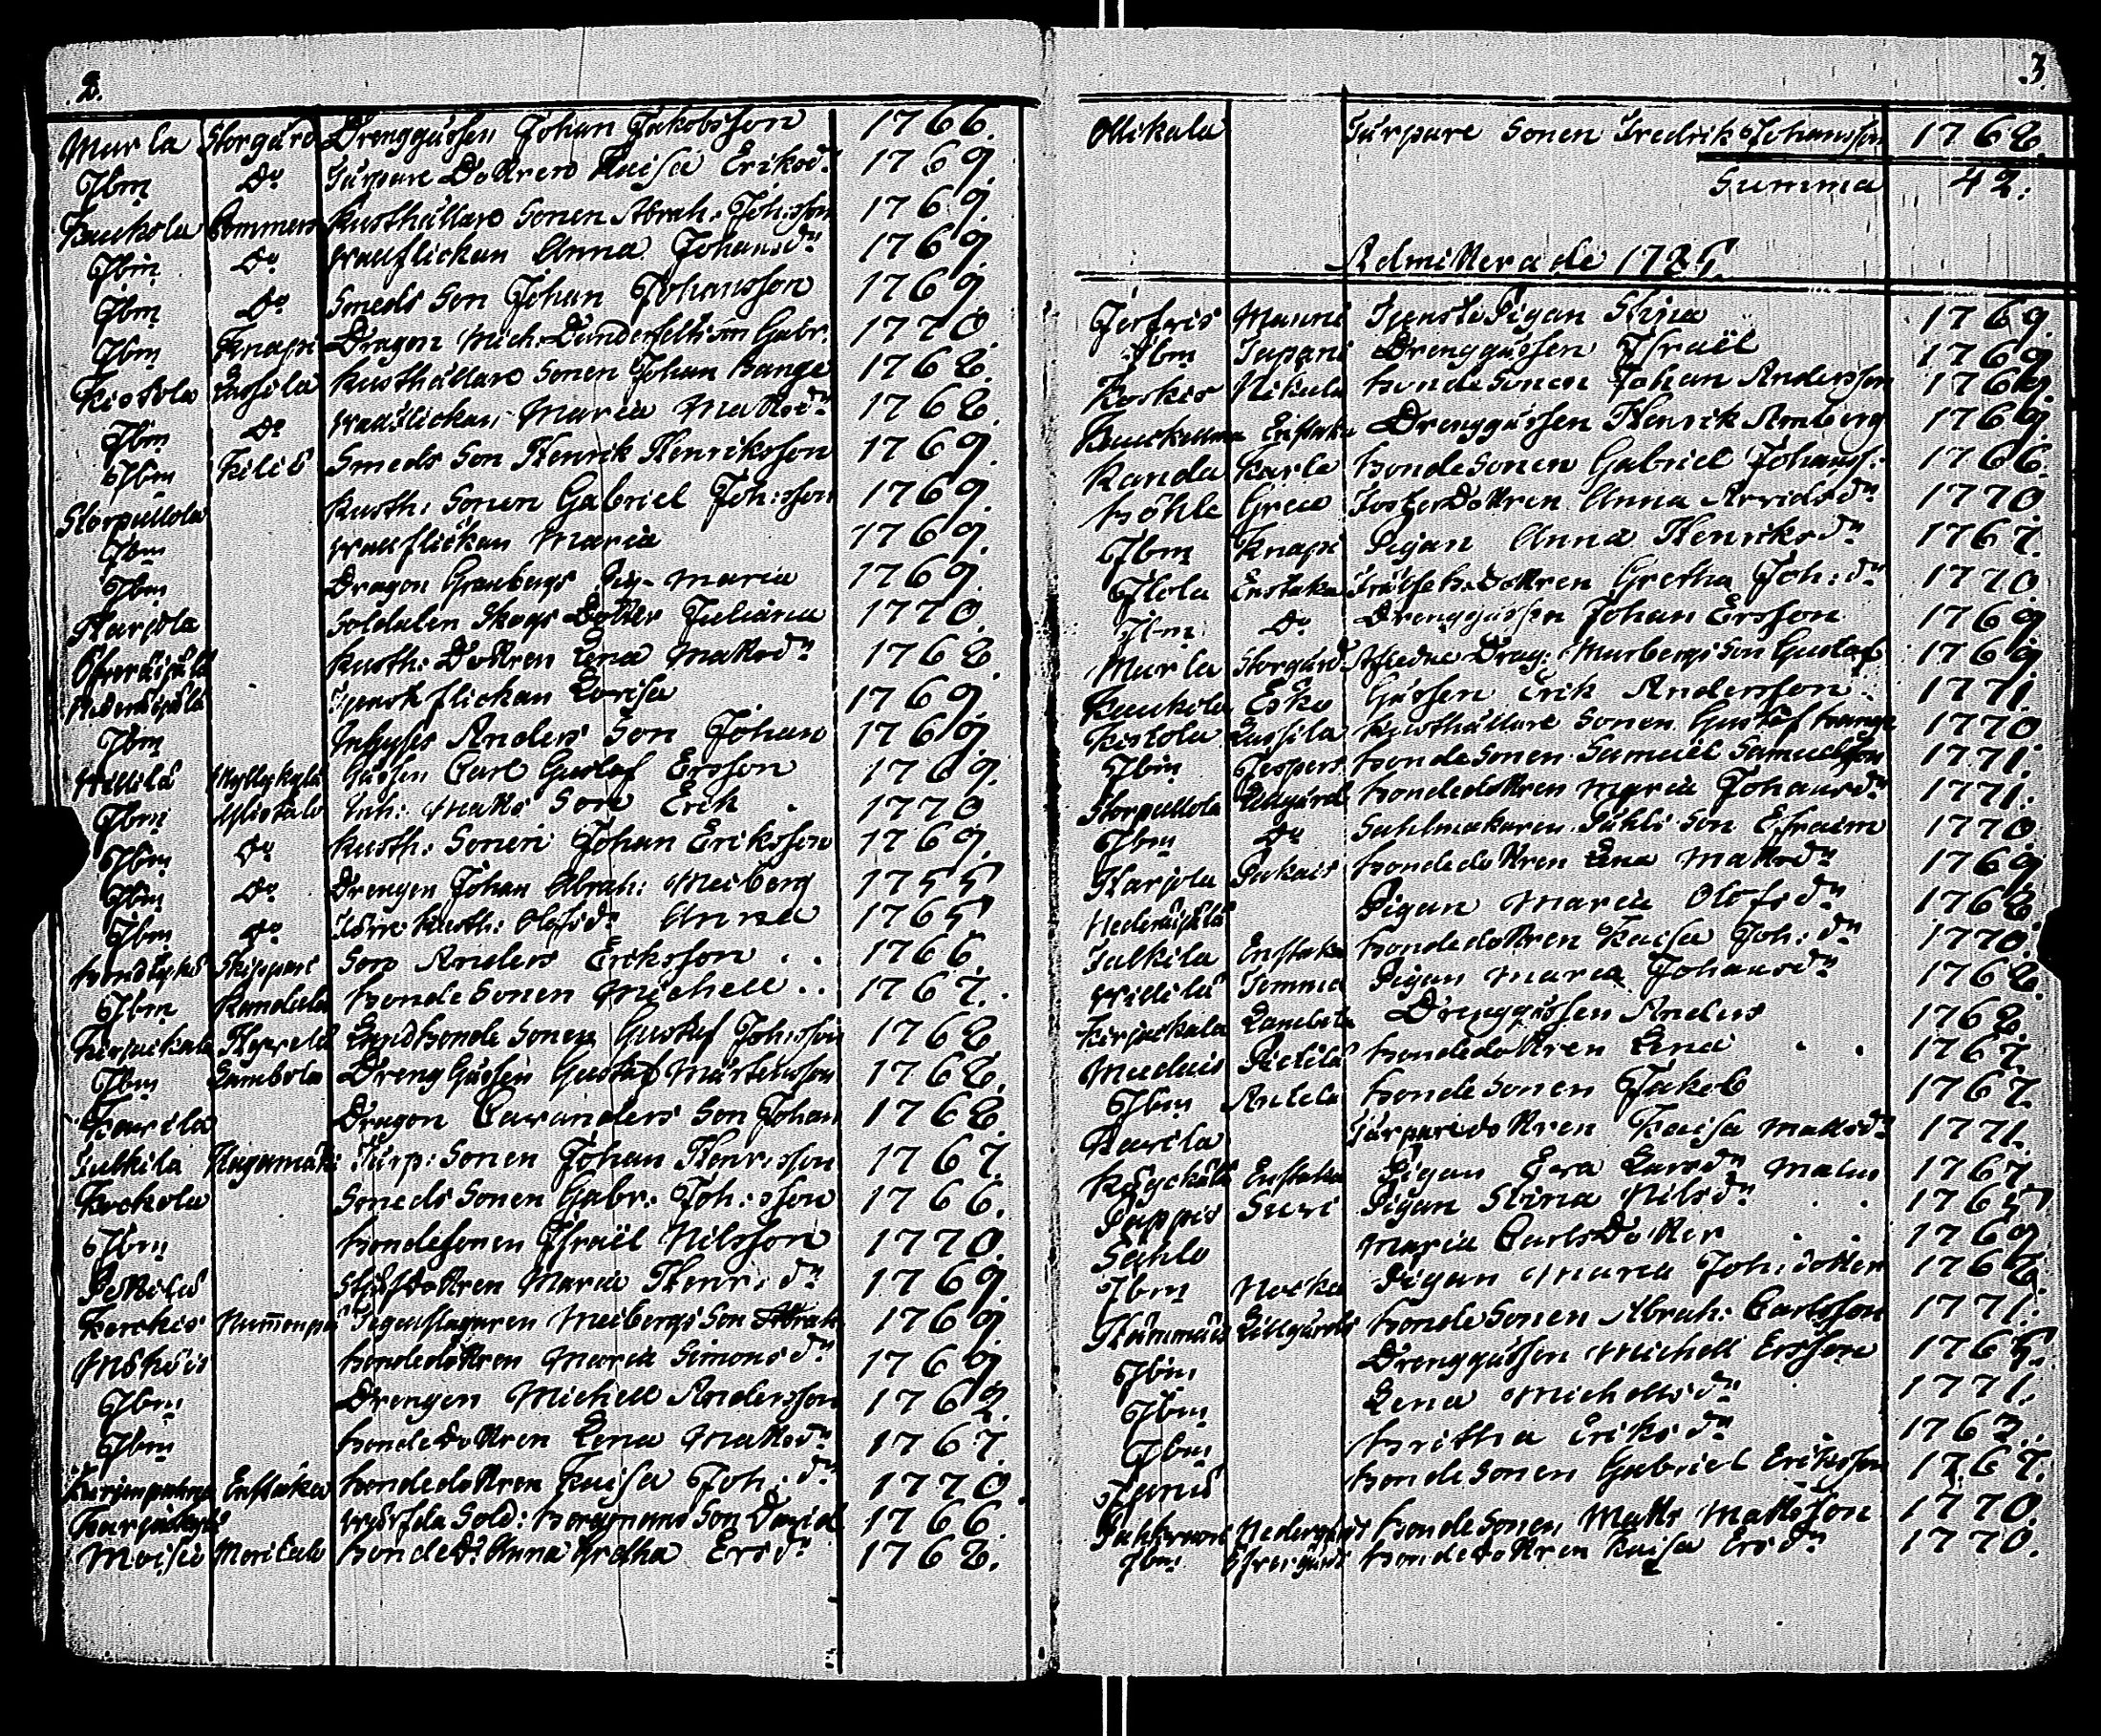 2.
Murla Storgård Drenggåssen Johan Jakobsson 1766.
Ibm Do Torpare Dottren Kaisa Eriksdr 1769.
Kaukola Pommers Rusthållare Sonen Abrah: Joh:sson 1769.
Ibm Do Wallflickan Anna Johansdr 1769.
Ibm Do Smeds Son Johan Johansson 1769.
Ibm Knapi Dragon Mich: Danderfelts son Gabr: 1770.
Kistola Lassila Rusthållare Sonen Johan Bange 1768.
Ibm Do Wallflickan Maria Mattsdr 1768.
Ibm Kilis Smeds Son Henrik Henriksson 1769.
Storpullola Rusth: Sonen Gabriel Joh:sson 1769.
Ibm Wallflickan Maria 1769.
Ibm Dragon Granbergs Maria 1769.
Harjola Soldaten Skogs Dotter Juliana 1770.
Rusth: Dottren Lena Mattsdr 1768
flickan Lovisa 1769.
Ibm Inhyses Anders Son Johan 1769
Willilä Myllykylä Gåssen Carl Gustaf Ersson 1769.
Ibm Inh: Matts Son Erik . 1770
Ibm Do Rusth: Sonen Johan Eriksson 1769.
Ibm Do Drengen Johan Abrah: Meiberg 1755
Ibm Do Rusth: Olofsdr Anna 1765
Skippari Son Anders Eriksson . . 1766
Ibm Randala Bonde Sonen Michell . . 1767.
Sonen Gustaf Joh:sson 1768
Ibm Lambola Dreng Gåssen Gustaf Mårtensson 1768.
Karila Dragon Cavanders Son Johan 1768.
Julkila Hagamäki Torp: Sonen Johan Henr:sson 1767.
Kockola Smeds Sonen Gabr: Joh:sson 1766.
Ibm Bondesonen Israël Nilsson 1770.
Pettilä Dottren Maria Henr: dr 1769.
Korckis Nummenpä Tegelslagaren Meibergs Son Abrah 1769.
Bondedottren Maria Simonsdr 1769
Ibm Drengen Michell Andersson 1762.
Ibm Bonde Dottren Lena Mattsdr 1767.
Enstaka Bondedottren Kaisa Joh: dr 1770.
Sold: Son David 1766.
Moisio Moritalo Bonde Dr Anna Gretha Ersdr 1768.
3
Ollikala Torpare Sonen Fredrik Johansson 1768
Summa 42.
Admitterade 1785.
Manni Tjenste Pigan Stina 1769.
Ibm Sapani Drenggåssen Israël 1769
Koskis Nikula Bonde Sonen Johan Andersson 1769.
Drenggåssen Henrik Amberg 1769.
Randa Karla Bonde Sonen Gabriel Johanss: 1766.
Böhle Greu Foster Dottren Anna Arvidsdr 1770
Ibm Knapi Pigan Anna Henriksdr 1767.
Ilola Enstaka Dottren Gretha Joh: dr 1770
Ibm Do Drenggåssen Johan Ersson 1769
Murla Storgård Afledne Drag: Murbergs Son Gustaf 1769
Kaukola Esko Gåssen Erik Andersson 1771.
Kistola Lassila Rusthållare Sonen Gustaf Bange 1770
Ibm Jespers Bonde Sonen Samuel Samuelsson 1771.
Storpullola Lillgård Bondedottren Maria Johansdr 1771.
Ibm Do Sahlmakaren Ståhls Son Efraim 1770
Harjola Pukais Bondedottren Lena Mattsdr 1769
Pigan Maria Olofsdr 1768
Julkila Enstaka Bondedottren Kaisa Joh: dr 1770.
Willilä Tomma Pigan Maria Johansdr 1768.
Lambola Drenggåssen Anders 1768.
Pietilä Bondedottren Lena . . 1767.
Ibm Antela Bonde Sonen Jakob 1767.
Karila Torparedottren Kaisa Mattsdr 1771.
Enstaka Pigan Eva Larsdr 1767
Pappis Suvi Pigan Stina Nilsdr . . 1765
Sahlo Maria Carls Dotter . . 1769
Ibm Nocka Pigan Maria Joh: dotter 1768.
Hammais Lillgårds Bonde Sonen Abrah: Carlsson 1771.
Ibm Drenggåssen Michell Ersson 1765.
Ibm Lena Michellsdr 1771.
Ibm Britha Eriksdr 1762.
Bonde Sonen Gabriel Eriksson 1767.
Bonde Sonen Matts Mattsson 1770.
Ibm Öfvergård Bonde Dottren Kaisa Ersdr 1770.